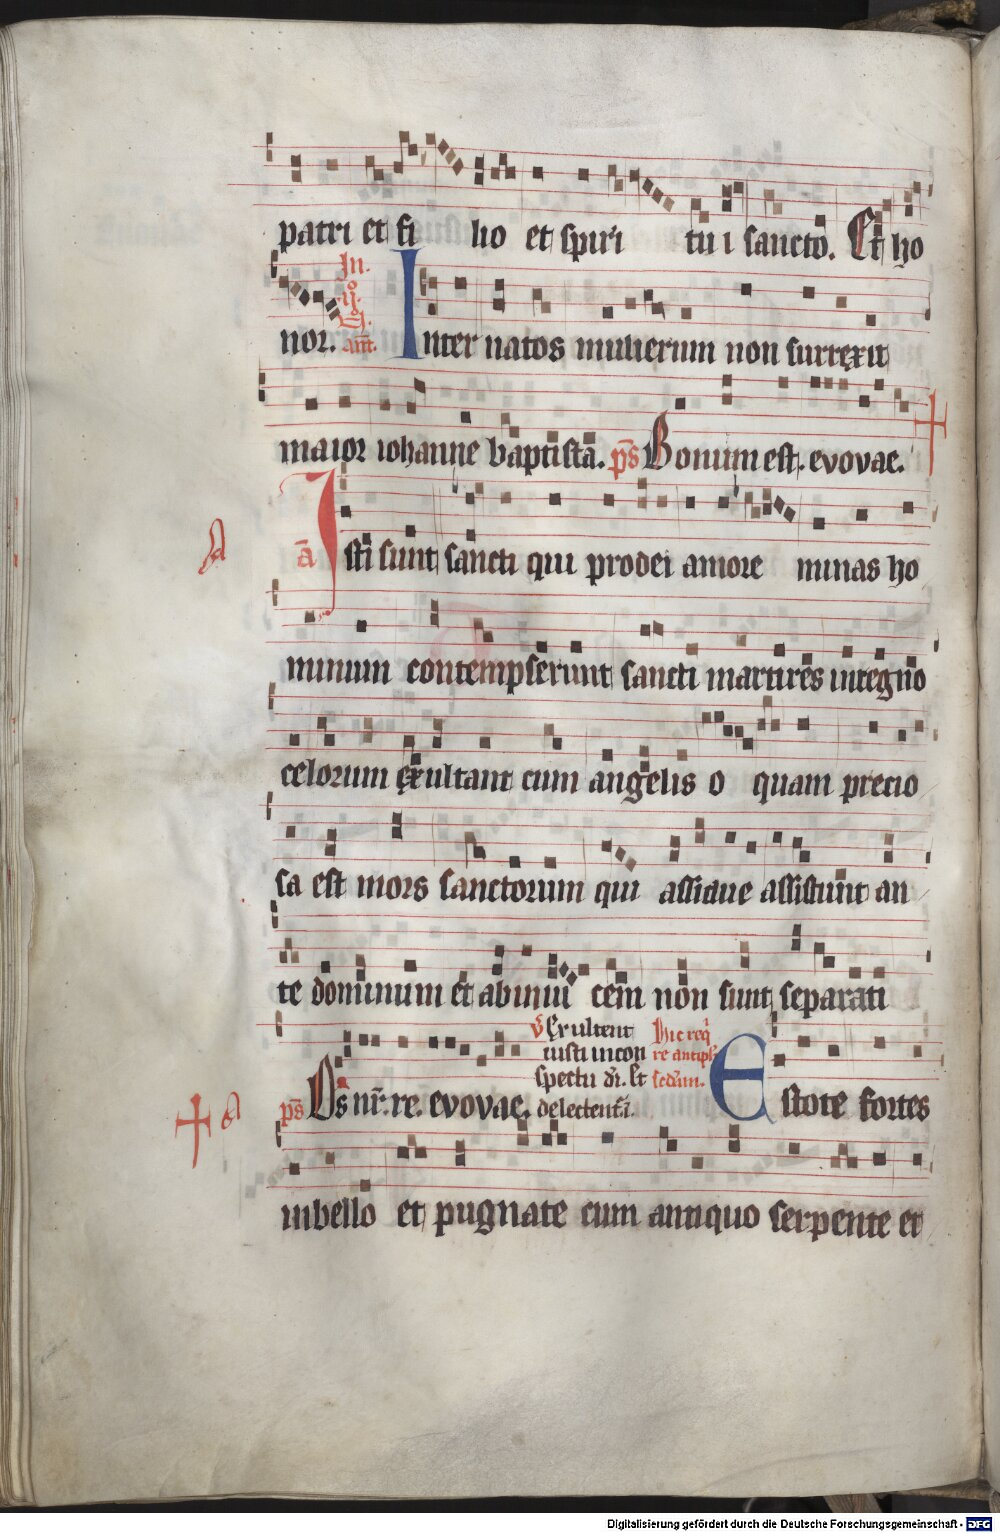 patri et fi lio et spiri tu i sancto. Et ho
In.
ij.
nor. añt. Inter natos mulierum non surrexit
maior iohanne baptista. ps̄ Bonum est. evovae.
A
ā Isti sunt sancti qui pro dei amore minas ho
minum contempserunt sancti martires in regno
celorum exultant cum angelis o quam precio
sa est mors sanctorum qui assidue assistunt an
te dominum et abinui cem non sunt separati
v̄ Exultent
iusti in con
spectu dī. Et
delectent᷑ ī.
Hic req̄
re antiph̄
sed'um.
ps̄ Ds̄ nr̄. re. evovae. Estote fortes
A
in bello et pugnate cum antiquo serpente et
Digitalisierung gefördert durch die Deutsche Forschungsgemeinschaft - DFG